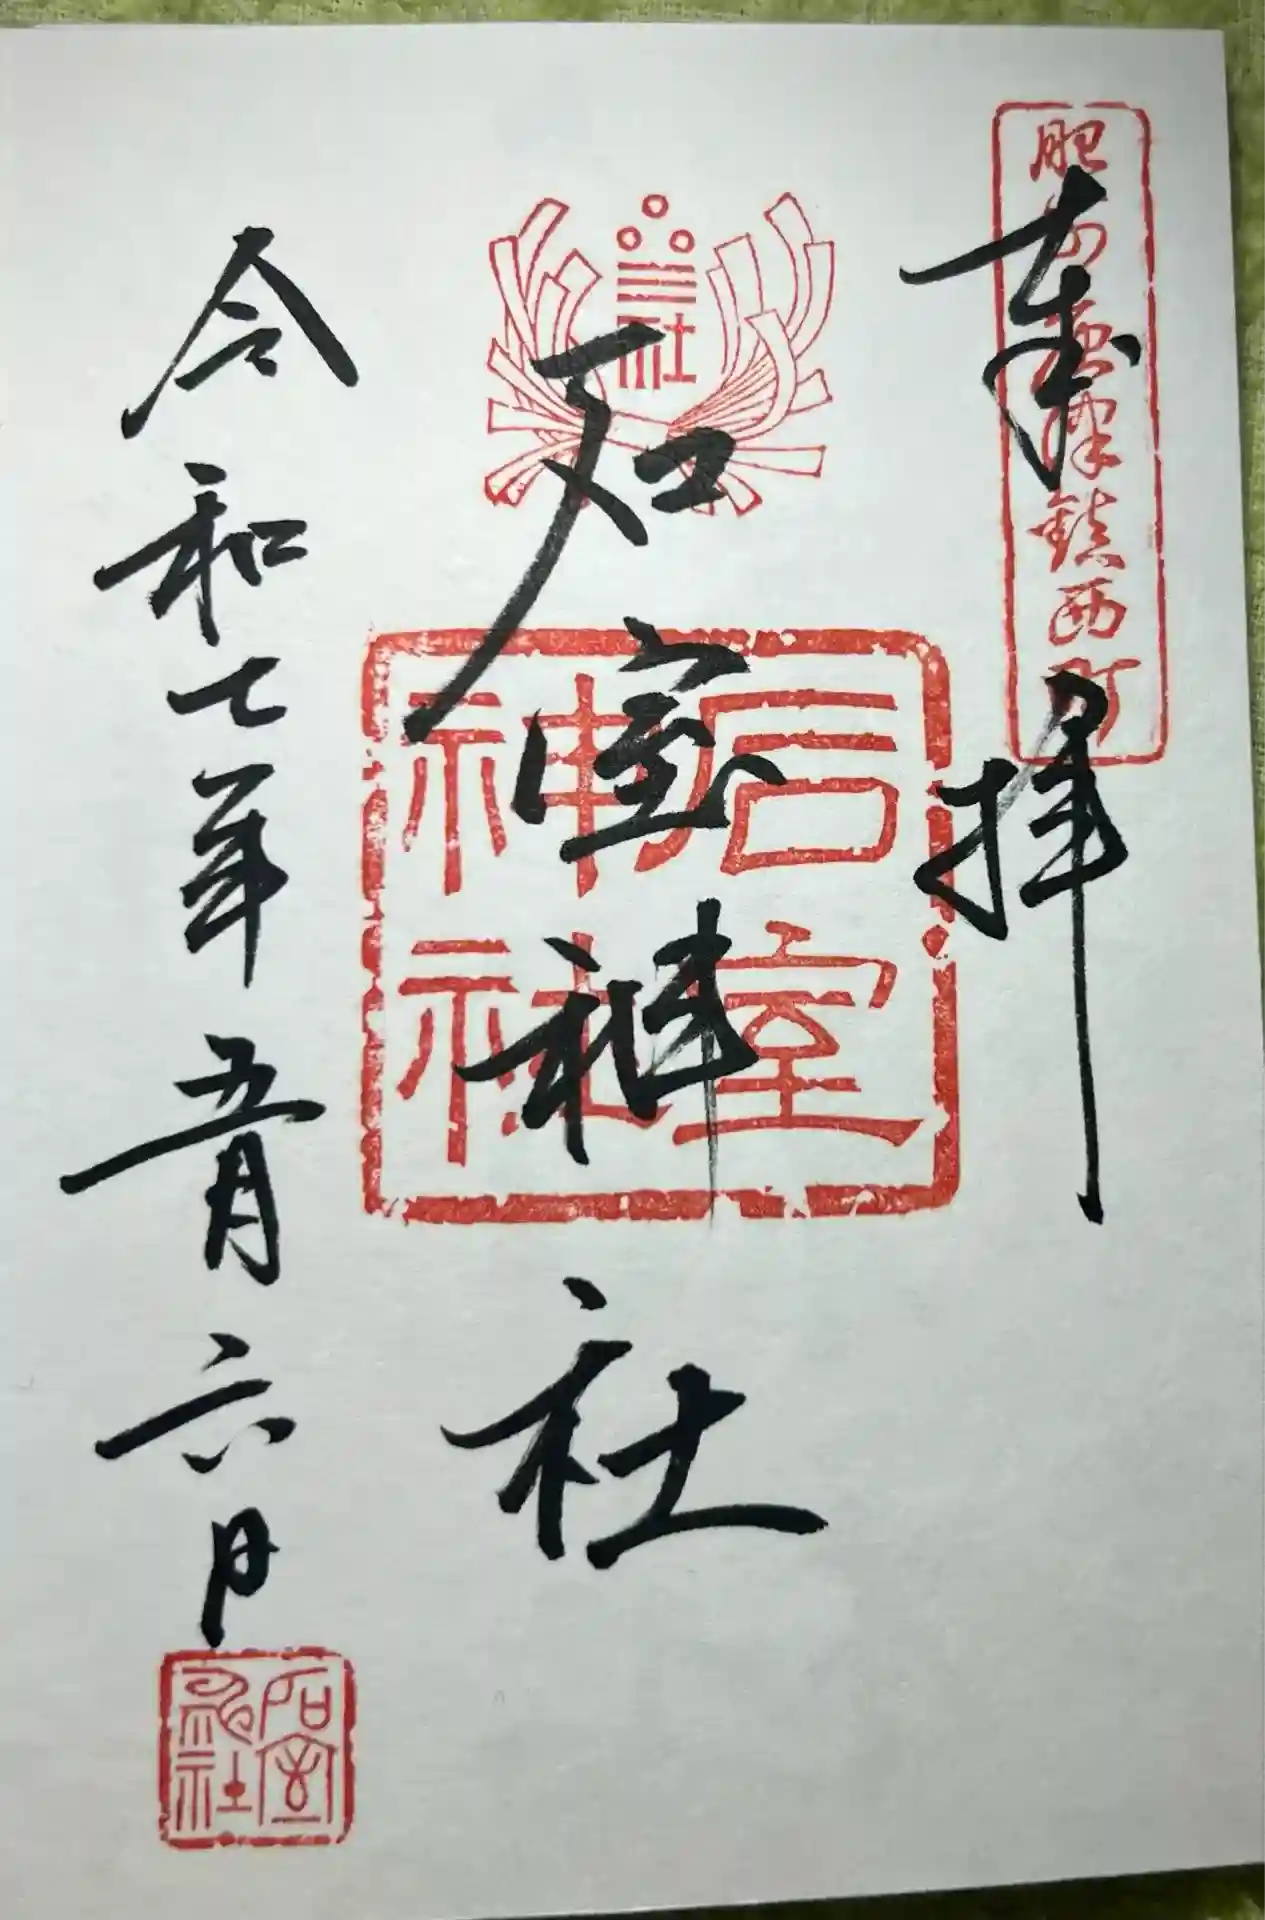 肥前唐津鎮西町
奉拝
三社
石室神社
石室
神社
令和七年五月六日
石室
神社